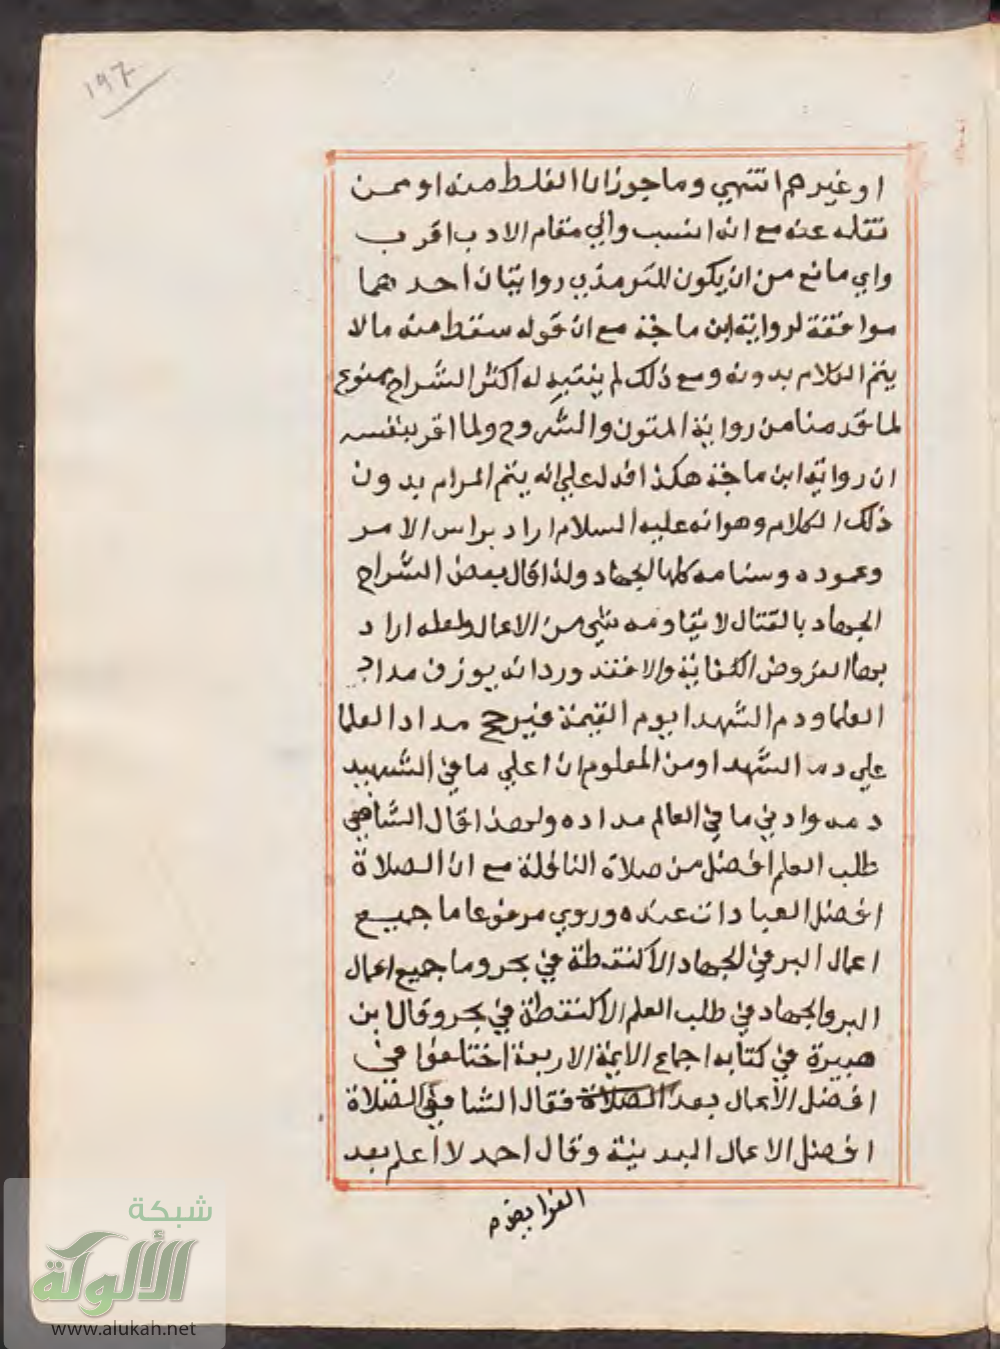 ١٩٧
او غيرهم انتهي وما جوزانا الغلط منه او ممن
نقله عنه مع انه انسب والي مقام الادب اقرب
واي مانع من ان يكون للترمذي روايتان احدهما
موافقة لرواية ابن ماجة مع ان قوله سقط منه ما لا
يتم الكلام بدونه ومع ذلك لم ينتبه له اكثر الشراح ممنوع
لما قدمنا من رواية المتون والشروح ولما اقر بنفسه
ان رواية ابن ماجة هكذا فدل علي انه يتم المرام بدون
ذلك الكلام وهو انه عليه السلام اراد براس الامر
وعموده وسنامه كلها الجهاد ولذا قال بعض الشراح
الجهاد بالقتال لا يقاومه شي من الاعمال ولعله اراد
بها الفروض الكفاية والا فقد ورد انه يوزن مداد
العلما ودم الشهدا يوم القيمة فيرجح مداد العلما
علي دم الشهدا ومن المعلوم ان اعلي ما في الشهيد
دمه وادني ما في العالم مداده ولهذا قال الشافعي
طلب العلم افضل من صلاة النافلة مع ان الصلاة
افضل العبادات عنده وروي مرفوعا ما جميع
اعمال البر في الجهاد الا كنقطة في بحر وما جميع اعمال
البر والجهاد في طلب العلم الا كنقطة في بحر وقال ابن
هبيرة في كتابه اجماع الايمة الاربعة اختلفوا في
افضل الاعمال بعد الصلاة فقال الشافعي الصلاة
افضل الاعمال البدنية وقال احمد لا اعلم بعد
الفرايض
شبكة
الألوكة
www.alukah.net